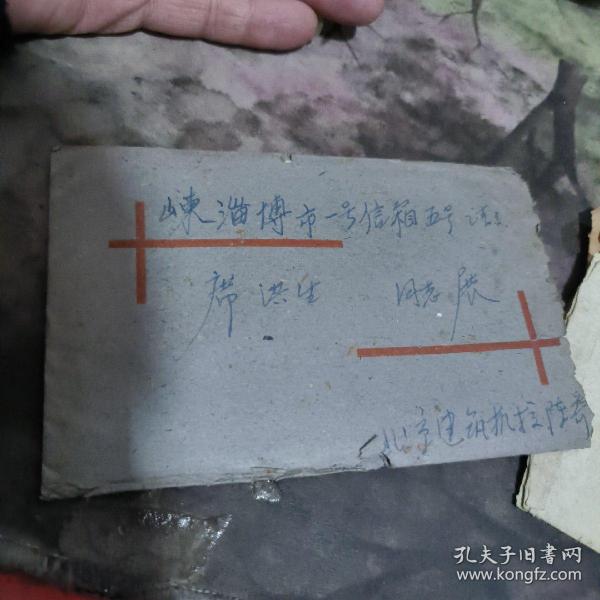 山東淄博市一号信箱五号
席洪生 同志展
北京建筑机校陈
孔夫子旧书网
www.kongfz.com